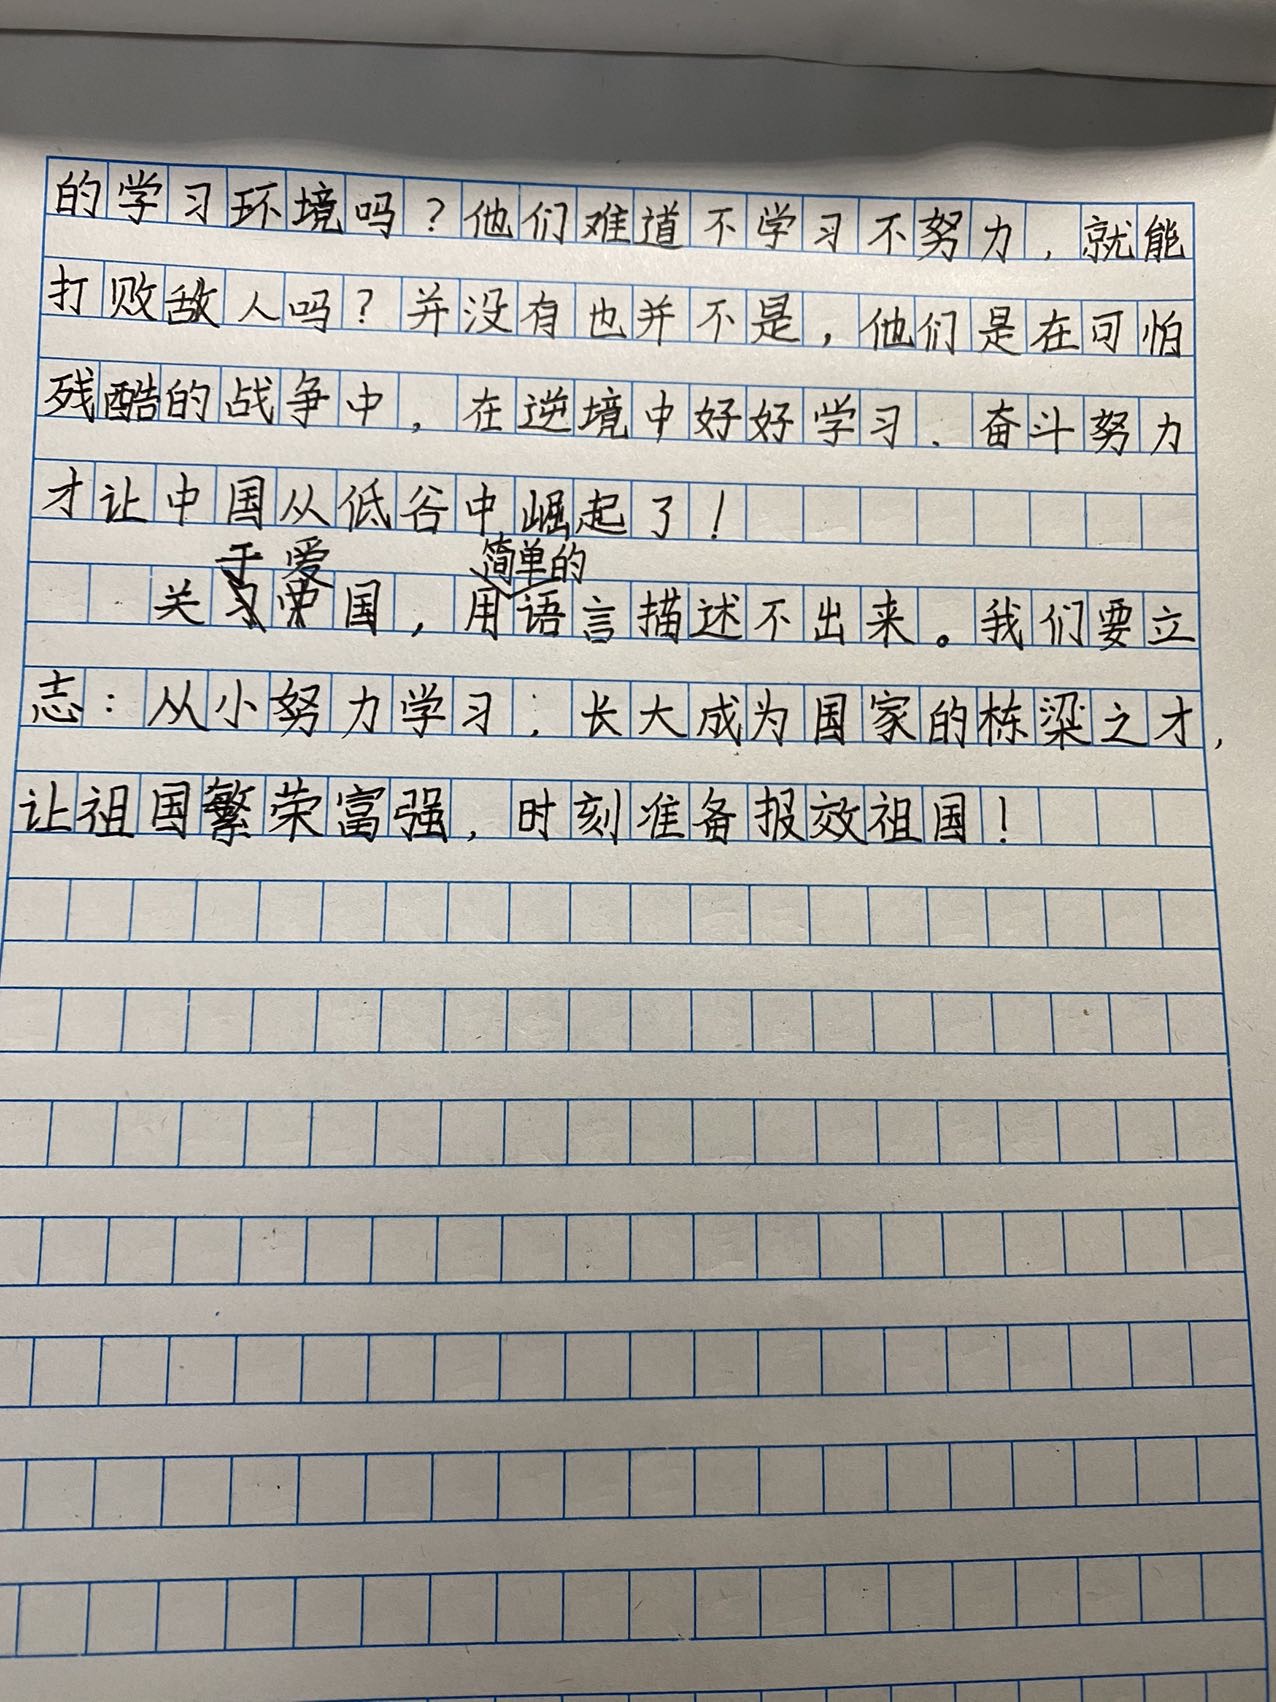 的学习环境吗?他们难道不学习不努力,就能
打败敌人吗?并没有也并不是,他们是在可怕
残酷的战争中,在逆境中好好学习、奋斗努力
才让中国从低谷中崛起了!
关于爱国,用简单的语言描述不出来。我们要立
志:从小努力学习;长大成为国家的栋梁之才,
让祖国繁荣富强,时刻准备报效祖国!